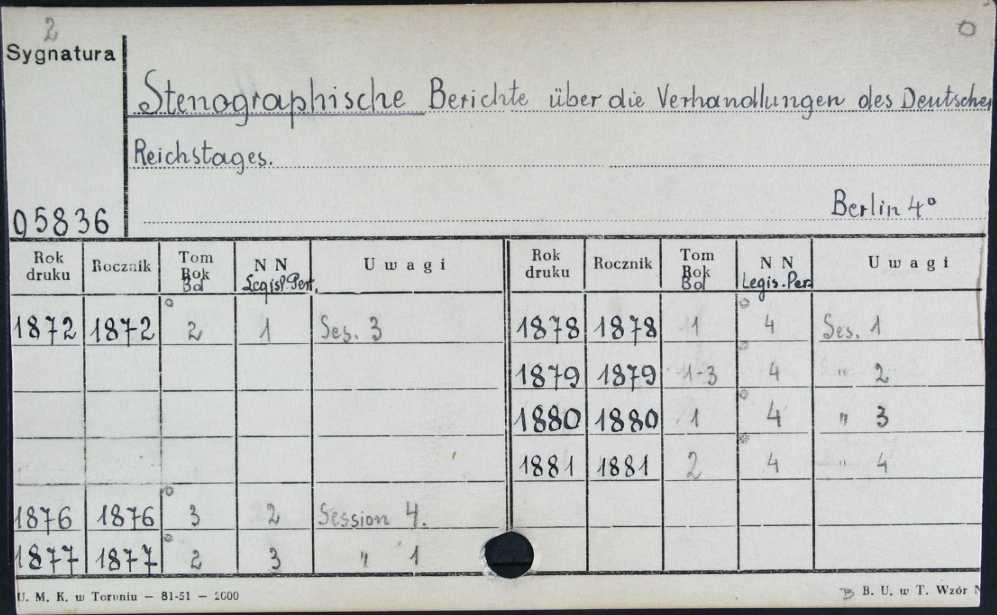 2
Sygnatura
Stenographische Berichte über die Verhandlungen des Deutschen
Reichstages.
Berlin 4°
05836
Rok druku Rocznik Tom Rok Bd N N Legisl. Per. Uwagi
1872 1872 2 1 Ses. 3
1876 1876 3 2 Session 4.
1877 1877 2 3 " 1
Rok druku Rocznik Tom Rok Bd N N Legis. Per. Uwagi
1878 1878 1 4 Ses. 1
1879 1879 1-3 4 " 2
1880 1880 1 4 " 3
1881 1881 2 4 " 4
U. M. K. w Toruniu — 81-51 — 2000
B. U. w T. Wzór